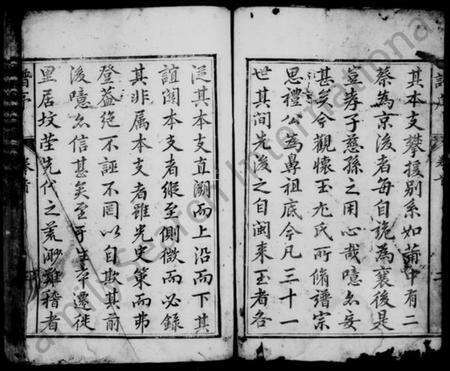 其本支攀援别系如莆中有二
蔡為京後者每自詭為襄後是
豈孝子慈孫之用心哉噫亦妄
甚矣今觀懷玉尤氏所脩譜宗
思禮公為鼻祖底今凡三十一
世其間先後之自閩來玉者各
從其本支直溯而上沿而下其
誼闗本支者縱至側微而必錄
其非属本支者雖光史策而弗
登葢絶不誣不罔以自欺其前
後噫亦信甚矣至於生卒遷徙
里居墳塋先代之荒渺難稽者
譜序
卷首